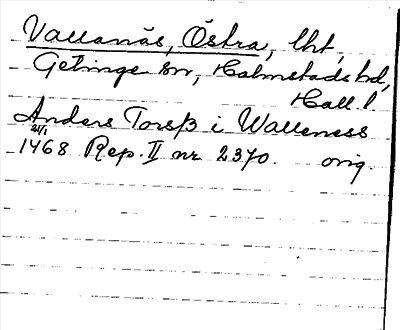 Vallanäs, Östra, lht,
Getinge sn, Halmstads hd,
Hall. l
Anders Torsß i Walleness
21/1
1468 Rep. II nr 2370. orig.